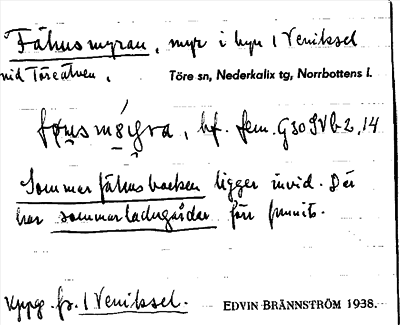 Fähusmyran, myr i byn 1 Veniksel
vid Töreälven. Töre sn, Nederkalix tg, Norrbottens l.
bf. fem. G30 SV b2,14
Sommarfähusbacken ligger invid. Där
har sommarladugårdar förr funnits.
Uppg. fr. 1 Veniksel. EDVIN BRÄNNSTRÖM 1938.